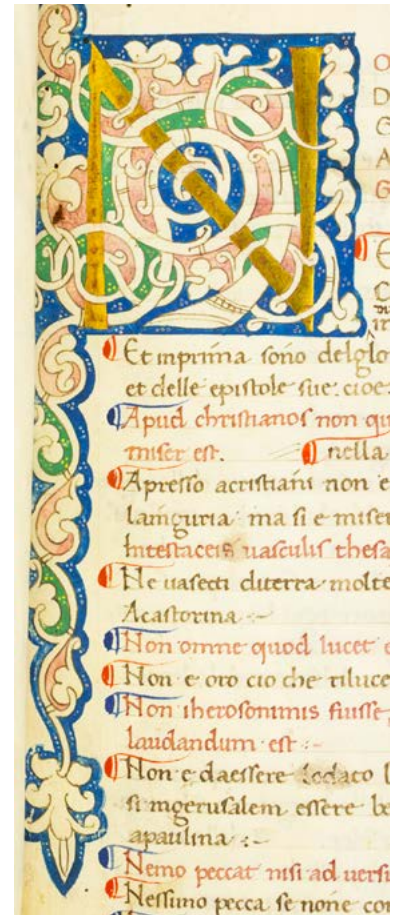 N
O
D
G
A
G
E
C
in
Et inprima sono del glo
et delle epistole sue: cioe:
Apud christianos non qu
miser est. nella
Apresso acristiani non e
laingiuria: ma si e miser
Intestaceis uasculis thesa
Ne uasecti diterra molte
Acastorina :~
Non omne quod lucet e
Non e oro cio che riluce
Non iherosonimis fuisse
laudandum est :~
Non e daessere lodato l
si ingerusalem essere be
apaulina :~
Nemo peccat nisi ad uersu
Nessuno pecca se none con